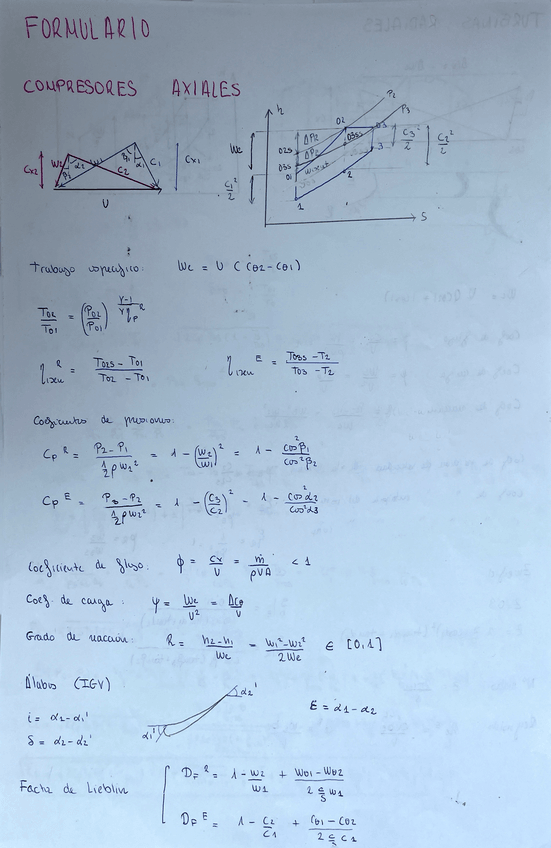 FORMULARIO
COMPRESORES AXIALES
h
P2
P3
02
03
03s
02s
03s
01
ΔP2
ΔP2
Wc
C1²/2
C3²/2
C2²/2
1
2
3
S
Cx2
W2
α2
β2
W1
C2
β1
α1
C1
Cx1
U
Trabajo específico: Wc = U C (Cθ2 - Cθ1)
T02/T01 = (P02/P01)^((γ-1)/γ ηp^R)
η isen^R = (T02s - T01)/(T02 - T01)    η isen^E = (T03s - T2)/(T03 - T2)
Coeficientes de presiones:
Cp^R = (P2 - P1)/(½ρW1²) = 1 - (W2/W1)² = 1 - cos²β1/cos²β2
Cp^E = (P3 - P2)/(½ρW2²) = 1 - (C3/C2)² - 1 - cos²α2/cos²α3
Coeficiente de flujo: ϕ = Cx/U = ṁ/(ρUA) < 1
Coef. de carga: ψ = Wc/U² = ΔCθ/U
Grado de reacción: R = (h2 - h1)/Wc = (W1² - W2²)/(2Wc) ∈ [0,1]
Álabes (IGV)
α2'
α1'
E = α1 - α2
i = α2 - α1'
δ = α2 - α2'
Factor de Lieblin
DF^R = 1 - W2/W1 + (Wθ1 - Wθ2)/(2 c/s W1)
DF^E = 1 - C2/C1 + (Cθ1 - Cθ2)/(2 c/s C1)